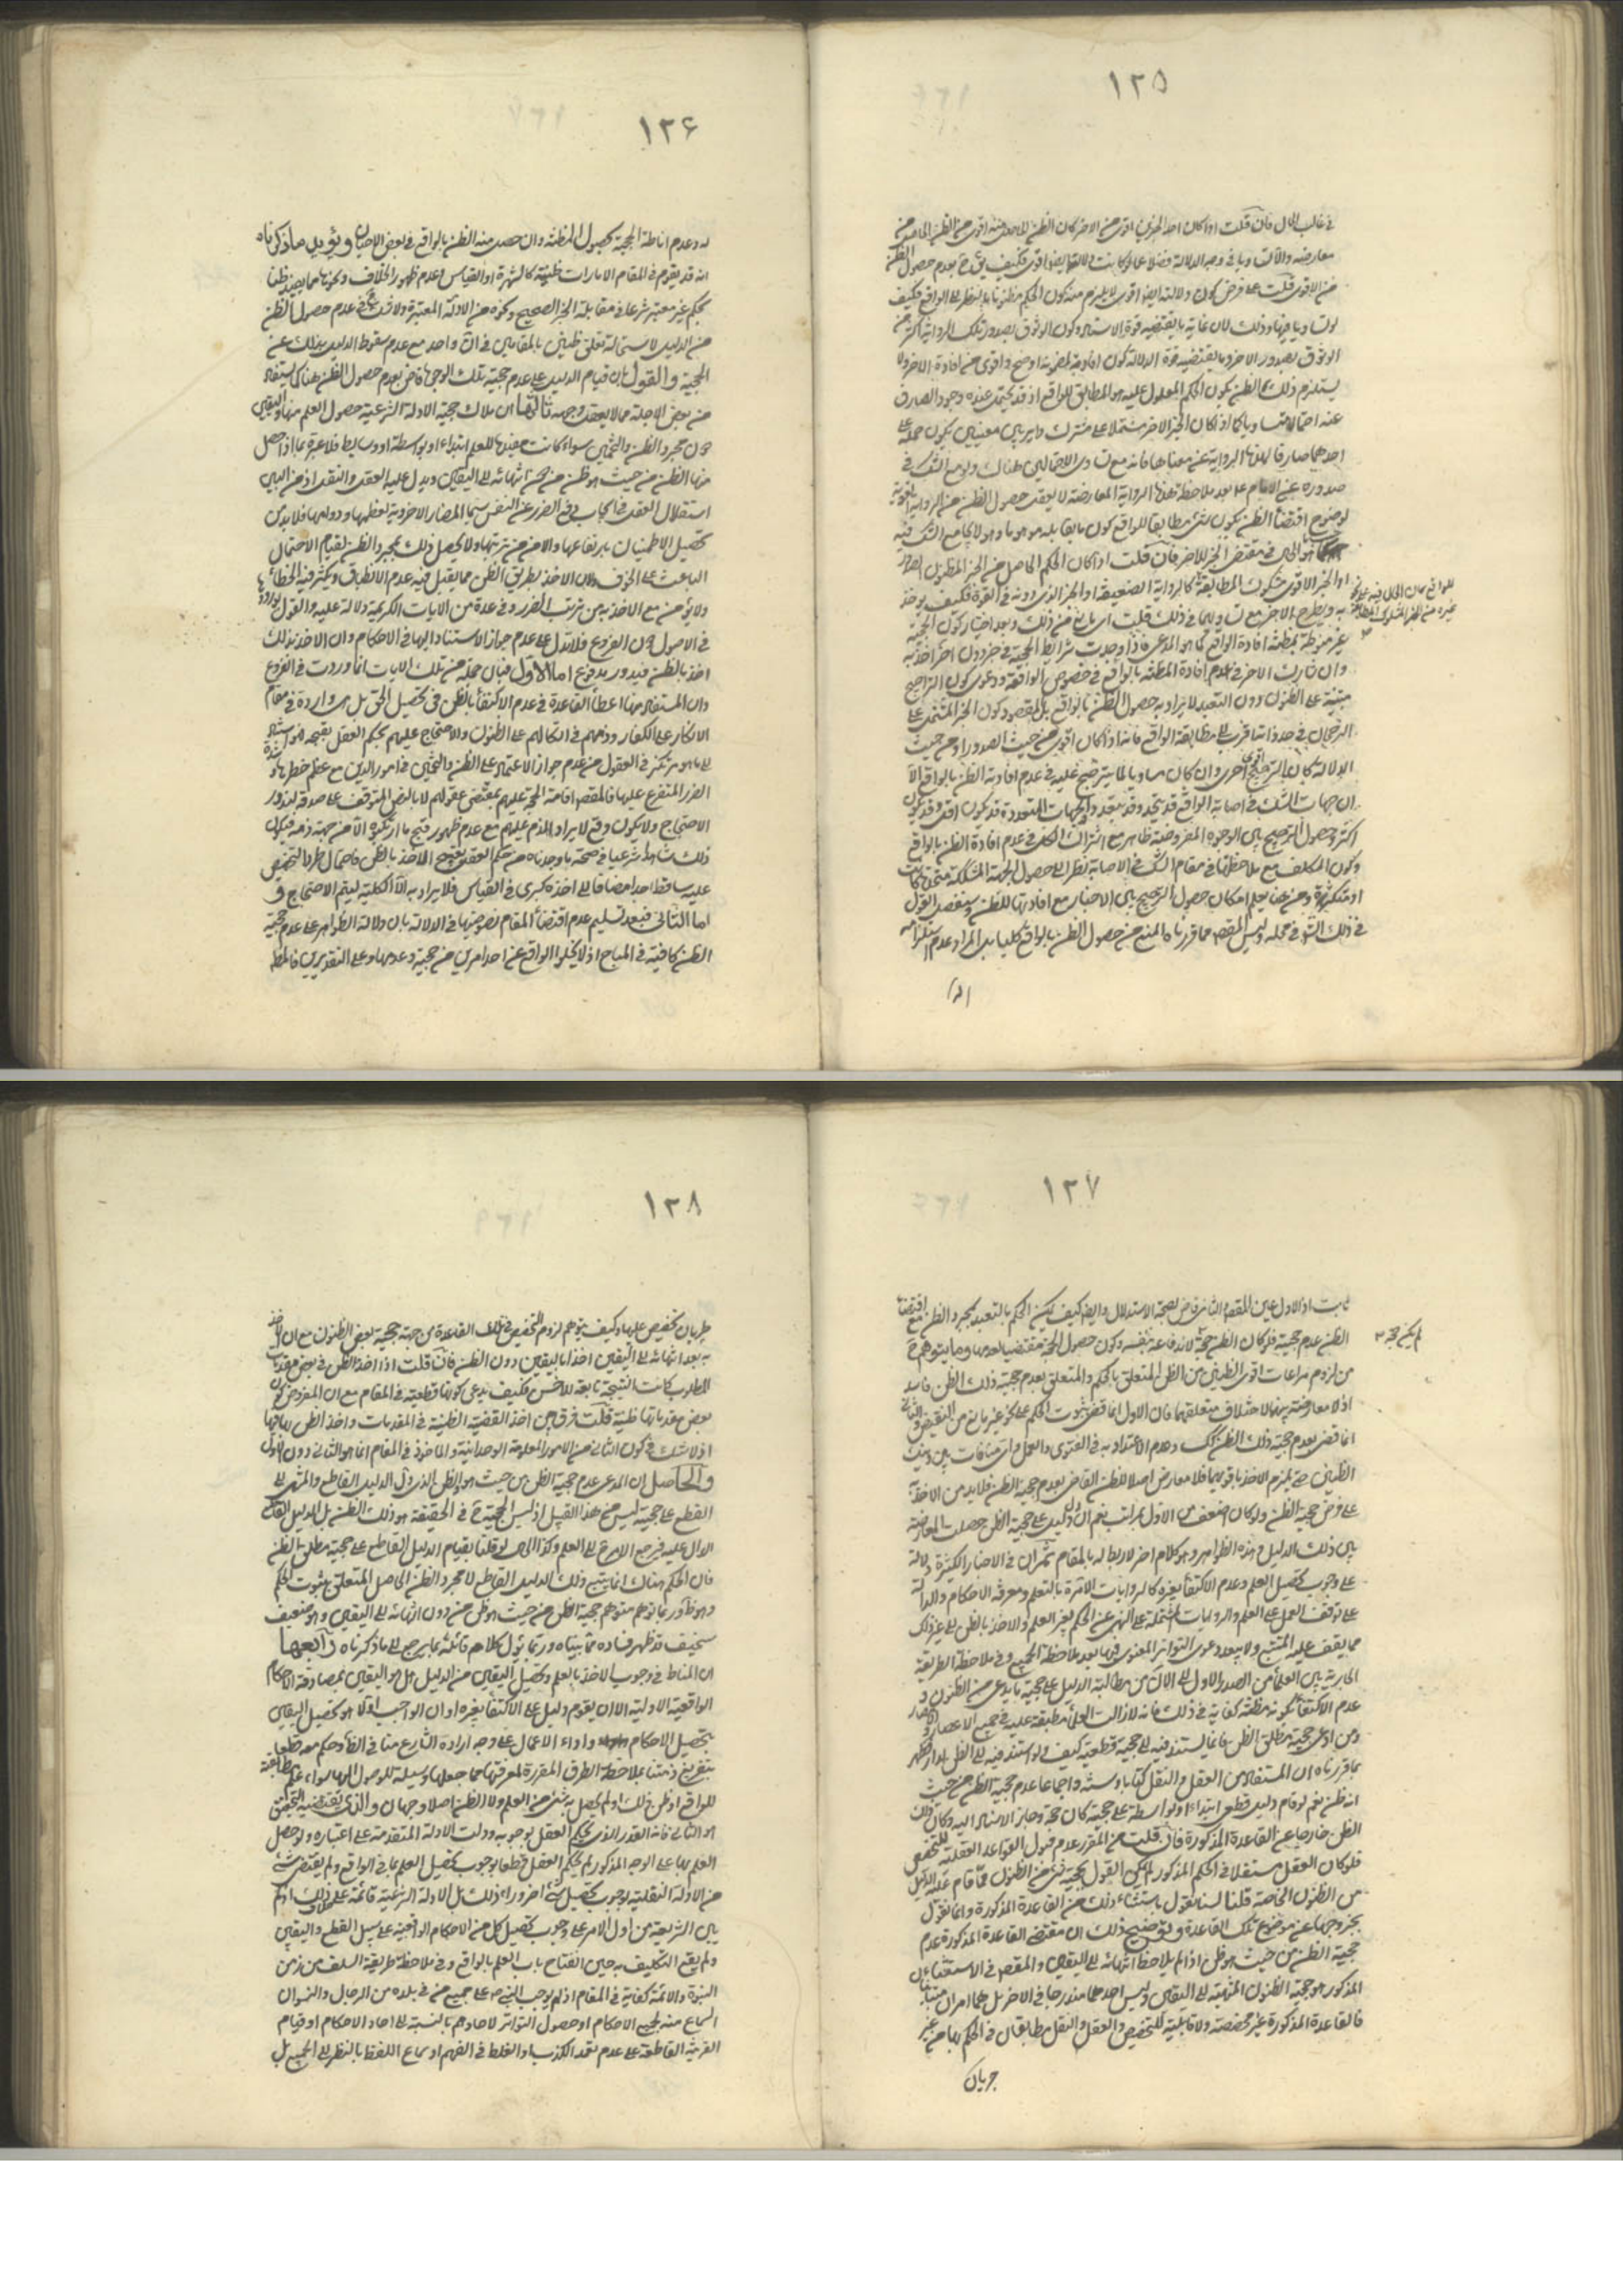 ١٢٥
في غالب الحال فان قلت اذا كان احد الخبرين اقوى من الاخر كان الظن الحاصل منه اقوى من الظن الحاصل من
معارضه والا لتساويا في وجه الدلالة فضلا عما لو كانت دلالتها ايضا اقوى فكيف يق ح بعدم حصول الظن
من الاقوى قلت على فرض كون دلالته ايضا اقوى لا يلزم منه كون الحكم مظنونا بالنظر الى الواقع فكيف
لو تساويا فيها وذلك لان غاية ما يقتضيه قوة الاسناد كون الوثوق بصدور تلك الرواية اكثر من
الوثوق بصدور الاخر وما يقتضيه قوة الدلالة كون افادته لمضمونه اوضح واقوى من افادة الاخر ولا
يستلزم ذلك الظن بكون الحكم المعلول عليه هو المطابق للواقع اذ قد يحتمل عنده وجود الصارف
عنه احتمالا متساويا كما اذا كان الخبر الاخر مشتملا على مشترك داير بين معنيين يكون حمله على
احدهما صارفا لهذه الرواية عن معناها فانه مع تساوى الاحتمالين هناك ولو مع الشك في
صدوره عن الامام ع بعد ملاحظة هذه الرواية المعارضة لا يعقل حصول الظن من الرواية القوية
لوضوح اقتضاء الظن بكون شئ مطابقا للواقع كون ما يقابله موهوما وهو لا يجامع الشك فيه
كما هو الحال في مقتضى الخبر الاخر فان قلت اذا كان الحكم الحاصل من الخبر المظنون الصدور
او الخبر الاقوى مشكوك المطابقة كالرواية الضعيفة او الخبر الذى دونه في القوة فكيف يوخذ
به ويطرح الاخر مع تساويهما في ذلك قلت اى مانع من ذلك وبعد اختيار كون الحجية
غير منوطة بمظنة افادة الواقع كما هو المدعى فاذا وجدت شرايط الحجية في خبر دون اخر اخذ به
وان شارك الاخر في عدم افادة المظنة بالواقع في خصوص الواقعة ودعوى كون التراجيح
مبنية على الظنون دون التعبد لا يراد به حصول الظن بالواقع بل المقصود كون الخبر المشتمل على
الرجحان في حد ذاته اقرب الى مطابقة الواقع فانه اذا كان اقوى من حيث الصدور او من حيث
الدلالة كان بالترجيح احرى وان كان مساويا لما يترجح عليه في عدم افادته الظن بالواقع الا
ان جهات الشك في اصابة الواقع قد يتحد وقد يتعدد والجهات المتعددة قد يكون اقل وقد يكون
اكثر وحصول الترجيح بين الوجوه المفروضة ظاهر مع اشتراك الكل في عدم افادة الظن بالواقع
وكون المكلف مع ملاحظتها في مقام الشك في الاصابة نظرا الى حصول الجهة المشككة متحدة كانت
او متكثرة ومن هنا يعلم امكان حصول الترجيح بين الاخبار مع افادتها للظن وسنفصل القول
في ذلك انش في محله وليس المقصد مما قررناه المنع من حصول الظن بالواقع كليا بل المراد عدم استلزامه
(له)
للواقع كان الحال فيه على نحو
غيره من الخبر المشكوك المطابقة
١٢۶
له وعدم اناطة الحجية بحصول المظنة وان حصل منه الظن بالواقع في بعض الاحيان ويؤيد ما ذكرناه
انه قد يقوم في المقام الامارات ظنية كالشهرة او القياس وعدم ظهور الخلاف ونحوها مما يفيد ظنا
بحكم غير معتبر شرعا في مقابلة الخبر الصحيح ونحوه من الادلة المعتبرة ولا شك ح في عدم حصول الظن
من الدليل لاستحالة تعلق ظنين بالمقابلين في ان واحد مع عدم سقوط الدليل بذلك عن
الحجية والقول بان قيام الدليل على عدم حجية تلك الوجوه قاض بعدم حصول الظن هنا كما يستفاد
من بعض الاجلة مما لا يعقل وجهه ثالثها ان ملاك حجية الادلة الشرعية حصول العلم منها واليقين
دون مجرد الظن والتخمين سواء كانت مفيدة للعلم ابتداء او بواسطة او وسايط فلا عبرة بما اذا حصل
منها الظن من حيث هو ظن من دون انتهائه الى اليقين ويدل عليه العقل والنقل اذ من البين
استقلال العقل في ايجاب دفع الضرر عن النفس سيما المضار الاخروية لعظمها ودوامها فلا بد من
تحصيل الاطمينان بارتفاعها والامن من ترتبها ولا يحصل ذلك بمجرد الظن لقيام الاحتمال
الباعث على الخوف وان الاخذ بطريق الظن مما يقبل فيه عدم الانطباق ويكثر فيه الخطأ
ولا يؤمن مع الاخذ به من ترتب الضرر وفي عدة من الايات الكريمة دلالة عليه والقول بورودها
في الاصول دون الفروع فلا تدل على عدم جواز الاستناد اليها في الاحكام وان الاخذ بذلك
اخذ بالظن فيدور مدفوع اما الاول فبان جملة من تلك الايات انما وردت في الفروع
وان المستفاد منها اعطاء القاعدة في عدم الاكتفاء بالظن في تحصيل الحق بل هى واردة في مقام
الانكار على الكفار وذمهم في اتكالهم على الظنون والاحتجاج عليهم بحكم العقل بقبحه فهو استناد
الى ما هو مرتكز في العقول من عدم جواز الاعتماد على الظن والتخمين في امور الدين مع عظم خطرها وشدة
الضرر المتفرع عليها فالمقصد اقامة الحجة عليهم بمقتضى عقولهم لا بالنص المتوقف على صدقه ليدور
الاحتجاج ولا يكون وقع لايراد الذم عليهم مع عدم ظهور قبح ما ارتكبوه الا من جهة ذمه فيكون
ذلك شاهدا شرعيا في صحة ما وجدناه من حكم العقل بقبح الاخذ بالظن فاحتمال طرو التخصيص
عليه ساقط جدا مضافا الى اخذه كبرى في القياس فلا يراد به الا الكلية ليتم الاحتجاج و
اما الثانى فبعد تسليم عدم اقتضاء المقام نصوصها في الدلالة بان دلالة الظواهر على عدم حجية
الظن كافية في المباح اذ لا يخلوا الواقع عن احد امرين من حجية وعدمها وعلى التقديرين فالمط
١٢٧
ثابت اذ الاول عين المقصد والثانى قاض بصحة الاستدلال وايضا كيف يمكن الحكم بالتعبد بمجرد الظن مع اقتضاء
الظن عدم حجيته فلو كان الظن حجة لانه قاعد بنفسه وكون حصول الحجة مقتضيا لعدمها وما يتوهم ح
من لزوم مراعات اقوى الظنين من الظن المتعلق بالحكم والمتعلق بعدم حجية ذلك الظن فاسد
اذ لا معارضة بينهما لاختلاف متعلقهما فان الاول انما قضى بثبوت الحكم على نحو غير مانع من النقيض والثانى
انما قضى بعدم حجية ذلك الظن كك وعدم الاعتداد به في الفتوى والعمل واى منافات بين ذينك
الظنين حتى يلزم الاخذ باقويهما فلا معارض اصلا للظن القاضى بعدم حجية الظن فلا بد من الاخذ به
على فرض حجية الظن ولو كان اضعف من الاول بمراتب نعم ان دل دليل على حجية الظن حصلت المعارضة
بين ذلك الدليل وهذه الظواهر وهو كلام اخر لا ربط له بالمقام ثم ان في الاخبار الكثيرة دلالة
على وجوب تحصيل العلم وعدم الاكتفاء بغيره كالروايات الامرة بالتعلم ومعرفة الاحكام والدالة
على توقف العمل على العلم والروايات المشتملة على النهى عن الحكم بغير العلم والاخذ بالظن الى غير ذلك
مما يقف عليه المتتبع ولا يبعد دعوى التواتر المعنوى فيها بعد ملاحظة الجميع وفي ملاحظة الطريقة
الجارية بين العلماء من الصدر الاول الى الان من مطالبة الدليل على حجية ما يدعى من الظنون و
عدم الاكتفاء بكونه مظنة كفاية في ذلك فانه لا زالت العلماء مطبقة عليه في جميع الاعصار والامصار
ومن ادعى حجية مطلق الظن فانما يستند فيه الى حجية قطعية كيف ولو استند فيه الى الظن لدار فظهر
بما قررناه ان المستفاد من العقل والنقل كتابا وسنة واجماعا عدم حجية الظن من حيث
انه ظن نعم لو قام دليل قطعى ابتداء او بواسطة على حجيته كان حجة وجاز الاستناد اليه وكان ذلك
الظن خارجا عن القاعدة المذكورة فان قلت من المقرر عدم قبول القواعد العقلية للتخصيص
فلو كان العقل مستقلا في الحكم المذكور لم يمكن القول بحجية شئ من الظنون مما قام عليه الدليل
من الظنون الخاصة قلنا لسنا نقول باستثناء ذلك من القاعدة المذكورة وانما نقول
بخروجها عن موضوع تلك القاعدة وتوضيح ذلك ان مقتضى القاعدة المذكورة عدم
حجية الظن من حيث هو ظن اذا لم يلاحظ انتهائه الى اليقين والمقصد في الاستثناء
المذكور هو حجية الظنون المنتهية الى اليقين وليس احدهما مندرجا في الاخر بل هما امران متباينان
فالقاعدة المذكورة غير مخصصة ولا قابلية للتخصيص والعقل والنقل مطابقان في الحكم بها من غير
جريان
لم يكن حجة
١٢٨
طريان تخصيص عليها وكيف يتوهم لزوم التخصيص في تلك القاعدة من جهة حجية بعض الظنون مع ان الاخذ
به بعد انتهائه الى اليقين اخذ باليقين دون الظن فان قلت اذا اخذ الظن في بعض مقدمات
المطلوب كانت النتيجة تابعة للاخس فكيف يدعى كونها قطعية في المقام مع ان المفروض كون
بعض مقدماتها ظنية قلت فرق بين اخذ القضية الظنية في المقدمات واخذ الظن بها فيها
اذ لا شك في كون الثانى من الامور المعلومة الوجدانية والماخوذ في المقام انما هو الثانى دون الاول
والحاصل ان المدعى عدم حجية الظن من حيث هو والظن الذى دل الدليل القاطع والمنتهى الى
القطع على حجيته ليس من هذا القبيل اذ ليس الحجية ح في الحقيقة هو ذلك الظن بل الدليل القاطع
الدال عليه فيرجع الامر ح الى العلم وكذا الحال لو قلنا بقيام الدليل القاطع على حجية مطلق الظن
فان الحكم هناك انما يتبع ذلك الدليل القاطع لا مجرد الظن الحاصل المتعلق بثبوت الحكم
وهو ظاهر وربما توهم متوهم حجية الظن من حيث هو ظن من دون انتهائه الى اليقين وهو ضعيف
سخيف قد ظهر فساده مما بيناه وربما يؤل كلام قائله بما يرجع الى ما ذكرناه رابعها
ان المناط في وجوب الاخذ بالعلم وتحصيل اليقين من الدليل هل هو اليقين بمصادفة الاحكام
الواقعية الاولية الا ان يقوم دليل على الاكتفاء بغيره او ان الواجب اولا هو تحصيل اليقين
بتحصيل الاحكام واداء الاعمال على وجه اراده الشارع منا في الظاهر وحكم معه قطعا
بتفريغ ذمتنا بملاحظة الطرق المقررة لمعرفتها مما جعلها وسيلة للوصول اليها سواء علم بمطابقته
للواقع او ظن ذلك او لم يحصل به شئ من العلم ولا الظن اصلا وجهان والذى يقتضيه التحقيق
هو الثانى فانه القدر الذى يحكم العقل بوجوبه ودلت الادلة المتقدمة على اعتباره ولو حصل
العلم بها على الوجه المذكور لم يحكم العقل قطعا بوجوب تحصيل العلم بما في الواقع ولم يقتض شئ
من الادلة النقلية لوجوب تحصيل شئ اخر وراء ذلك بل الادلة الشرعية قائمة على خلاف ذلك اذ لم
يبن الشريعة من اول الامر على وجوب تحصيل كل من الاحكام الواقعية على سبيل القطع واليقين
ولم يقع التكليف به حين انفتاح باب العلم بالواقع وفي ملاحظة طريقة السلف من زمن
النبى ص والائمة كفاية في المقام اذ لم يوجب النبى ص على جميع من في بلده من الرجال والنسوان
السماع منه لجميع الاحكام او حصول التواتر لاحادهم بالنسبة الى احاد الاحكام او قيام
القرينة القاطعة على عدم تعمد الكذب او الغلط في الفهم او سماع اللفظ بالنظر الى الجميع بل